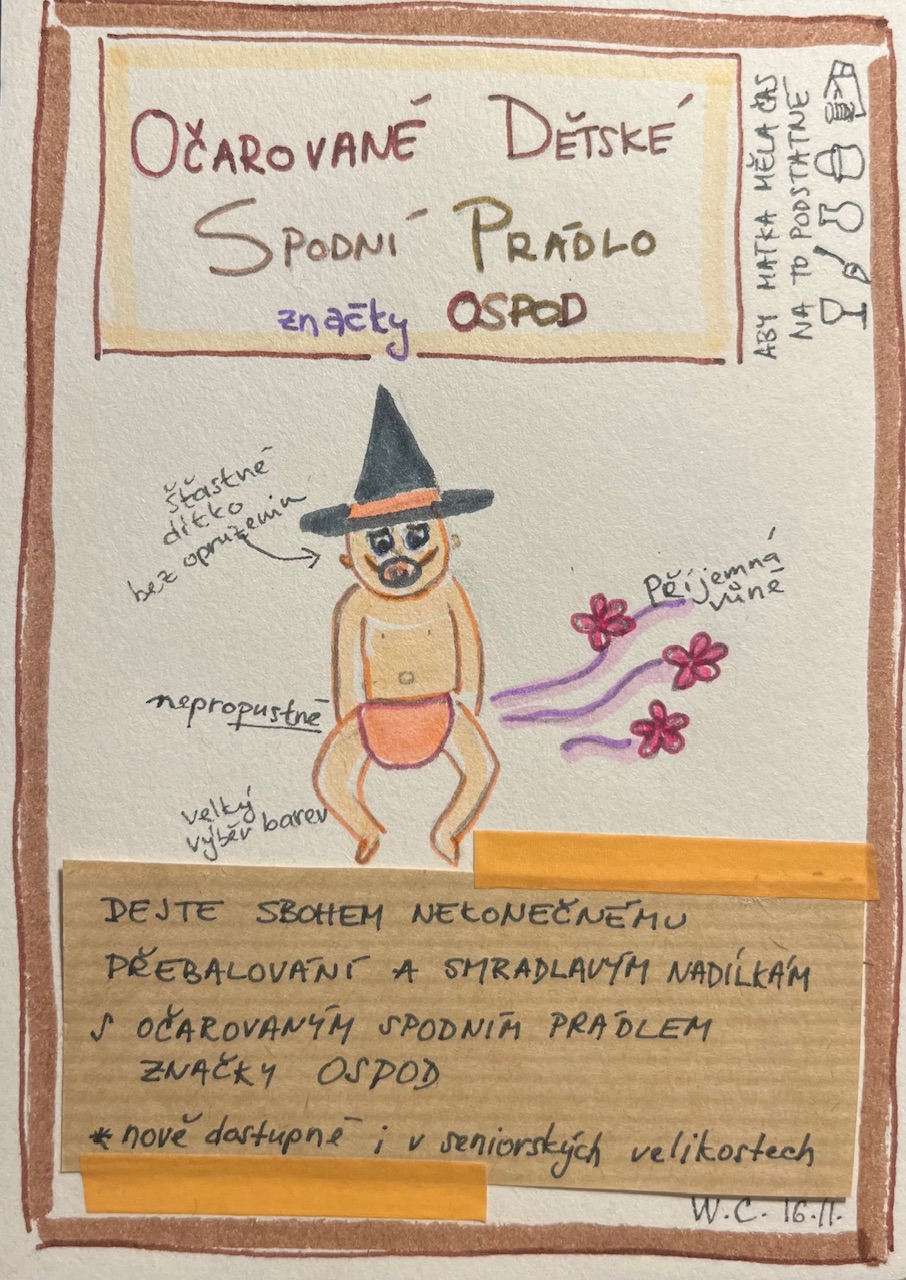 OČAROVANÉ DĚTSKÉ
SPODNÍ PRÁDLO
značky OSPOD
ABY MATKA MĚLA ČAS
NA TO PODSTATNÉ
šťastné
dítko
bez opruzenin
Příjemná
vůně
nepropustné
velký
výběr barev
DEJTE SBOHEM NEKONEČNÉMU
PŘEBALOVÁNÍ A SMRADLAVÝM NADÍLKÁM
S OČAROVANÝM SPODNÍM PRÁDLEM
ZNAČKY OSPOD
*nově dostupné i v seniorských velikostech
W.C. 16.11.